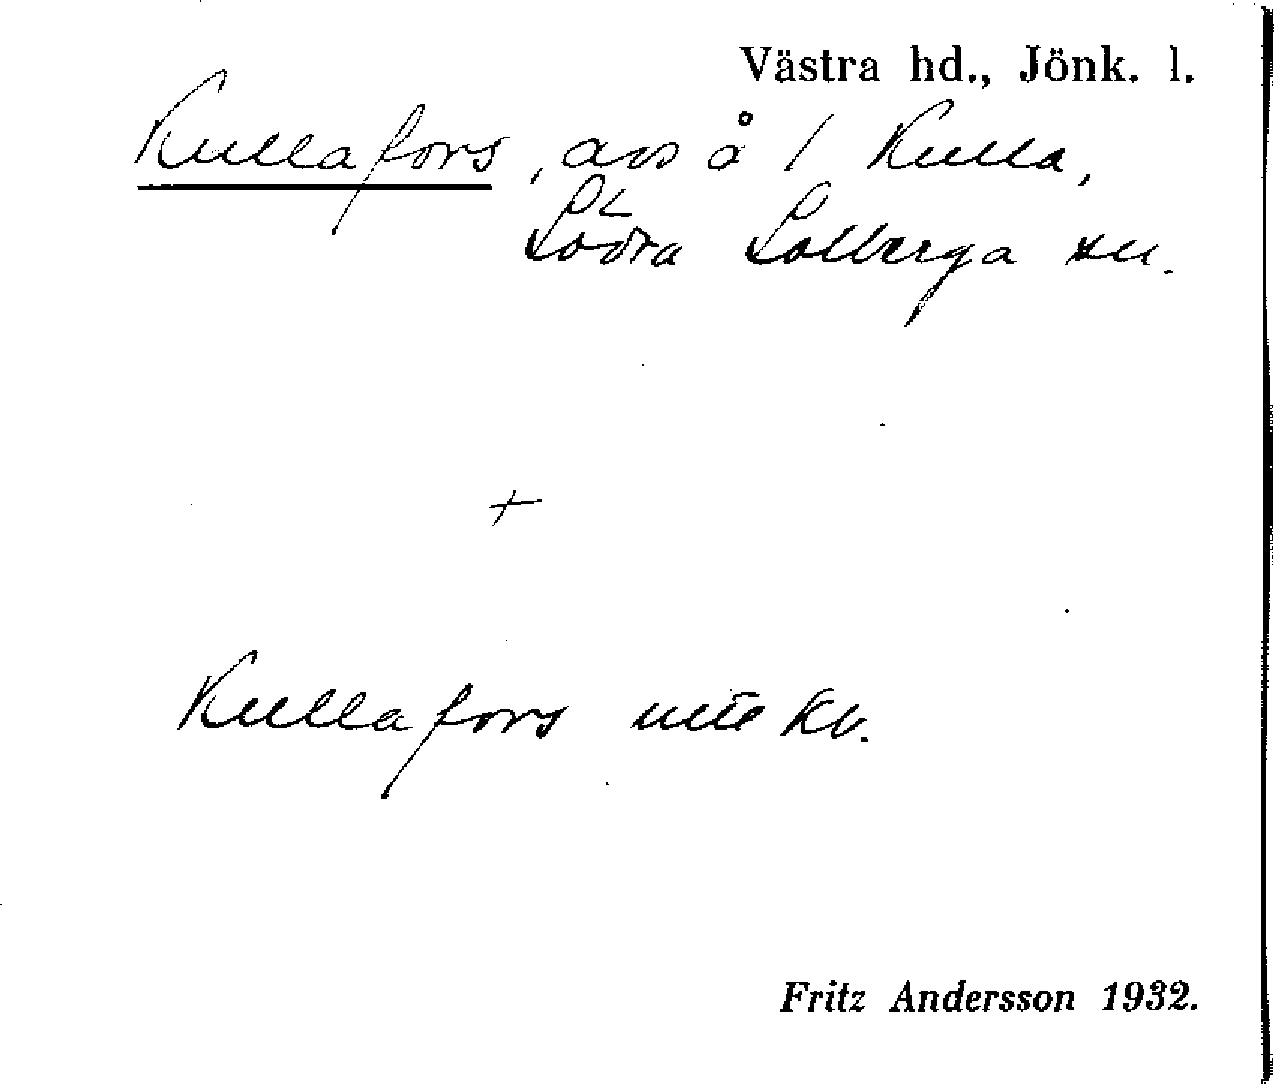 Västra hd., Jönk. l.
Kullafors, avs å / Kulla,
Södra Solberga sn.
+
Kullafors kv.
Fritz Andersson 1932.